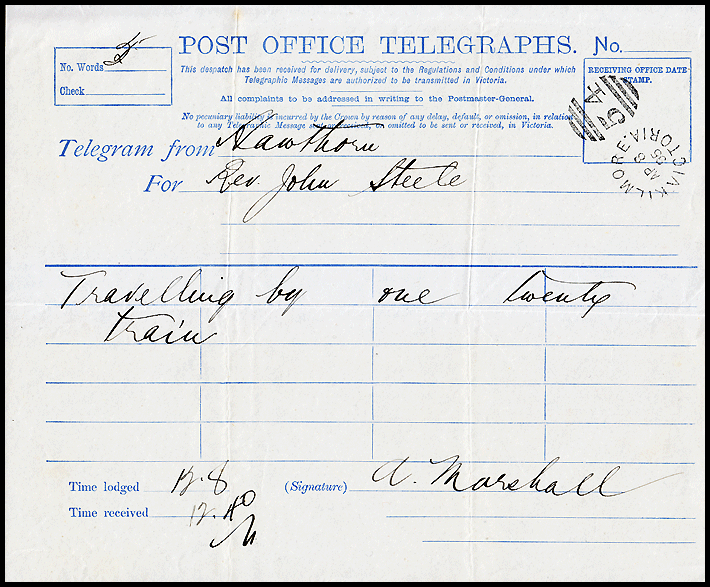 POST OFFICE TELEGRAPHS. No.
No. Words 5
Check
This despatch has been received for delivery, subject to the Regulations and Conditions under which
Telegraphic Messages are authorized to be transmitted in Victoria.
All complaints to be addressed in writing to the Postmaster-General.
No pecuniary liability is incurred by the Crown by reason of any delay, default, or omission, in relation
to any Telegraphic Message sent or received, or omitted to be sent or received, in Victoria.
RECEIVING OFFICE DATE
STAMP.
KILMORE. VICTORIA
54
AP 8
Telegram from Hawthorn
For Rev. John Steele
Travelling by one twenty
train
Time lodged 12.8
(Signature) A. Marshall
Time received 12.40